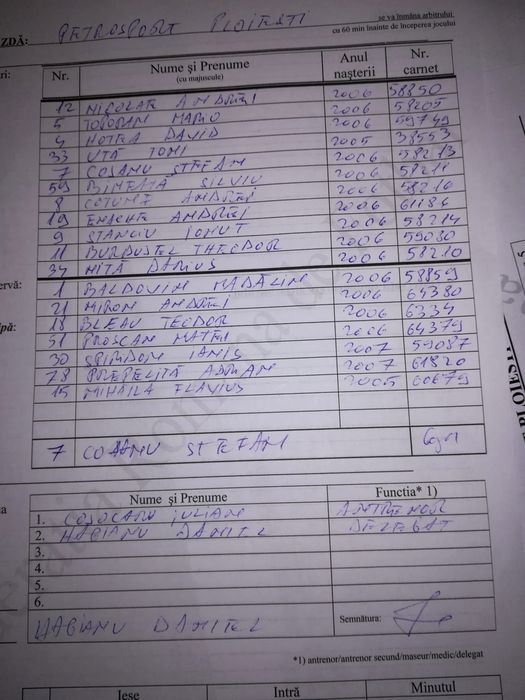 se va înmâna arbitrului
ZDĂ: PETROSPORT PLOIESTI cu 60 min înainte de începerea jocului
ri: Nr. Nume şi Prenume (cu majuscule) Anul naşterii Nr. carnet
12 NICOLAE ANDREI 2006 58850
5 TOPORAN MARIO 2006 58205
4 HOTEA DAVID 2006 59749
33 UTĂ TOMI 2005 38553
7 COSANU STEFAN 2006 58213
SILVIU 2006 58211
8 ANDREI 2006 58216
19 ENACHE ANDREI 2006 61186
9 STANCIU IONUT 2006 58214
11 BURDUSEL THEODOR 2006 59080
34 NITĂ DARIUS 2006 58210
ervă: 1 BALDOVIN MADALIN 2006 58859
21 MIRON ANDREI 2006 64380
18 BLEAU TEODOR 2006 6334
ipă: 51 PROSCAN MATEI 2006 64379
30 SPIRIDON IANIS 2007 59087
78 PREPELITĂ ADRIAN 2007 61820
15 MIHAILA FLAVIUS 2005 60679
7 COSANU STEFAN
Nume şi Prenume Functia* 1)
1. COJOCARU IULIAN ANTRENOR
2. HABIANU DANIEL DELEGAT
3.
4.
5.
6.
HABIANU DANIEL Semnătura:
*1) antrenor/antrenor secund/maseur/medic/delegat
Ieşe Intră Minutul
PLOIEŞTI